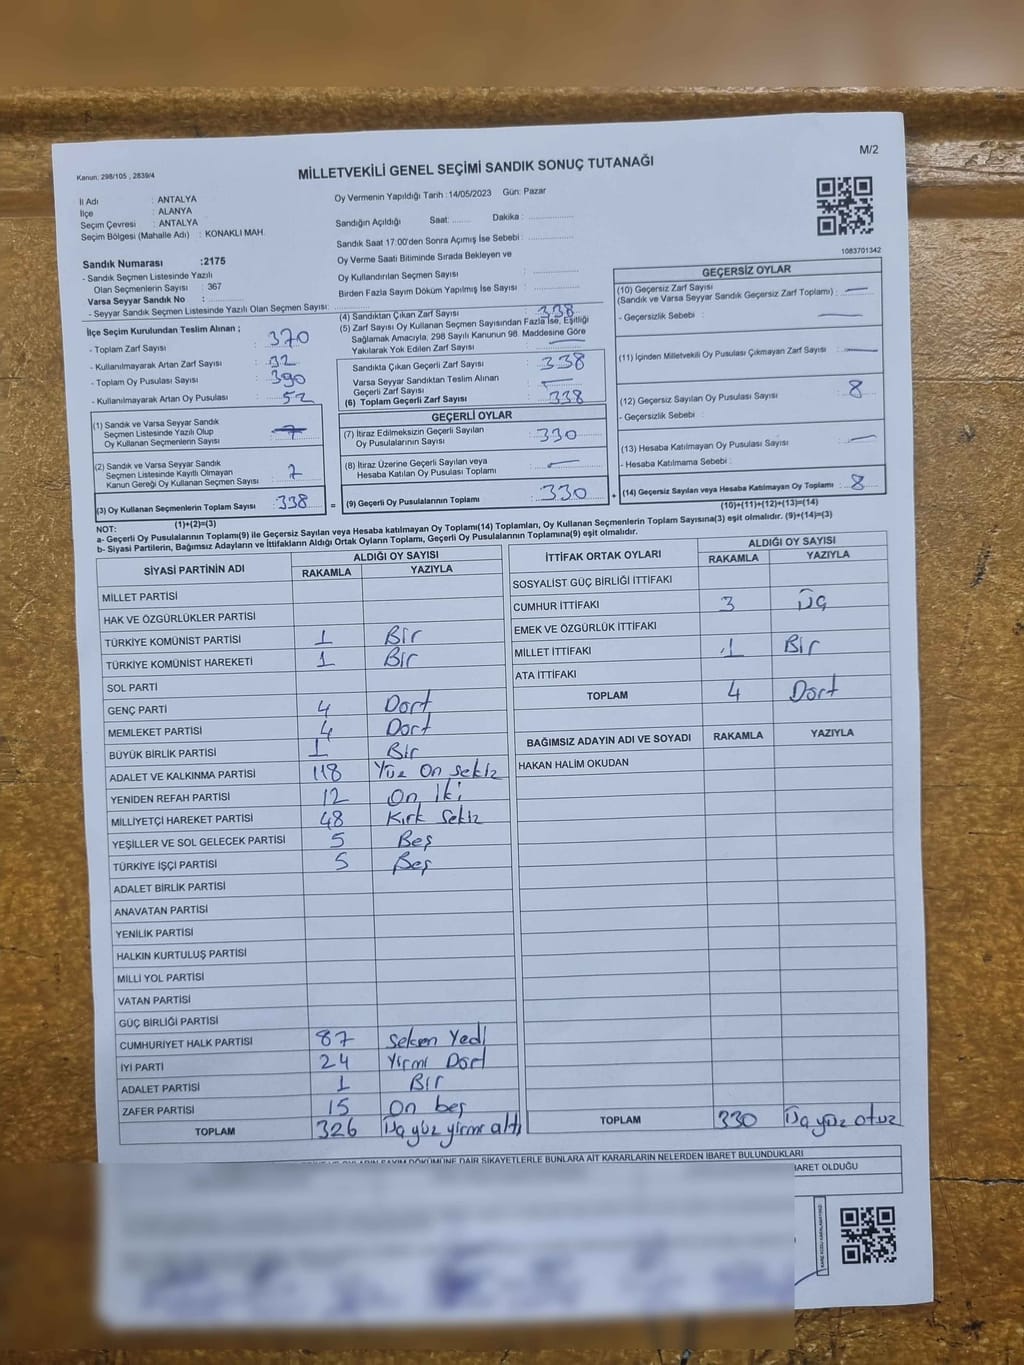 Kanun: 298/105 , 2839/4
MİLLETVEKİLİ GENEL SEÇİMİ SANDIK SONUÇ TUTANAĞI
M/2
İl Adı : ANTALYA
İlçe : ALANYA
Seçim Çevresi : ANTALYA
Seçim Bölgesi (Mahalle Adı) : KONAKLI MAH.
Oy Vermenin Yapıldığı Tarih :14/05/2023 Gün: Pazar
Sandığın Açıldığı Saat: ........ Dakika : ................
Sandık Saat 17:00'den Sonra Açımış İse Sebebi : ................
Oy Verme Saati Bitiminde Sırada Bekleyen ve
Oy Kullandırılan Seçmen Sayısı : ................
Birden Fazla Sayım Döküm Yapılmış İse Sayısı : ................
1083701342
Sandık Numarası :2175
- Sandık Seçmen Listesinde Yazılı
Olan Seçmenlerin Sayısı : 367
Varsa Seyyar Sandık No : ................
- Seyyar Sandık Seçmen Listesinde Yazılı Olan Seçmen Sayısı:
İlçe Seçim Kurulundan Teslim Alınan ;
- Toplam Zarf Sayısı : 370
- Kullanılmayarak Artan Zarf Sayısı : 32
- Toplam Oy Pusulası Sayısı : 390
- Kullanılmayarak Artan Oy Pusulası : 52
(1) Sandık ve Varsa Seyyar Sandık
Seçmen Listesinde Yazılı Olup
Oy Kullanan Seçmenlerin Sayısı :
(2) Sandık ve Varsa Seyyar Sandık
Seçmen Listesinde Kayıtlı Olmayan
Kanun Gereği Oy Kullanan Seçmen Sayısı : 7
(3) Oy Kullanan Seçmenlerin Toplam Sayısı : 338
(1)+(2)=(3)
(4) Sandıktan Çıkan Zarf Sayısı : 338
(5) Zarf Sayısı Oy Kullanan Seçmen Sayısından Fazla İse, Eşitliği
Sağlamak Amacıyla, 298 Sayılı Kanunun 98. Maddesine Göre
Yakılarak Yok Edilen Zarf Sayısı : —
Sandıkta Çıkan Geçerli Zarf Sayısı : 338
Varsa Seyyar Sandıktan Teslim Alınan
Geçerli Zarf Sayısı : —
(6) Toplam Geçerli Zarf Sayısı : 338
GEÇERLİ OYLAR
(7) İtiraz Edilmeksizin Geçerli Sayılan
Oy Pusulalarının Sayısı : 330
(8) İtiraz Üzerine Geçerli Sayılan veya
Hesaba Katılan Oy Pusulası Toplamı : —
= (9) Geçerli Oy Pusulalarının Toplamı : 330 +
GEÇERSİZ OYLAR
(10) Geçersiz Zarf Sayısı
(Sandık ve Varsa Seyyar Sandık Geçersiz Zarf Toplamı) : —
- Geçersizlik Sebebi : —
(11) İçinden Milletvekili Oy Pusulası Çıkmayan Zarf Sayısı : —
(12) Geçersiz Sayılan Oy Pusulası Sayısı : 8
- Geçersizlik Sebebi :
(13) Hesaba Katılmayan Oy Pusulası Sayısı : —
- Hesaba Katılmama Sebebi :
(14) Geçersiz Sayılan veya Hesaba Katılmayan Oy Toplamı : 8
(10)+(11)+(12)+(13)=(14)
NOT:
a- Geçerli Oy Pusulalarının Toplamı(9) ile Geçersiz Sayılan veya Hesaba katılmayan Oy Toplamı(14) Toplamları, Oy Kullanan Seçmenlerin Toplam Sayısına(3) eşit olmalıdır. (9)+(14)=(3)
b- Siyasi Partilerin, Bağımsız Adayların ve İttifakların Aldığı Ortak Oyların Toplamı, Geçerli Oy Pusulalarının Toplamına(9) eşit olmalıdır.
SİYASİ PARTİNİN ADI ALDIĞI OY SAYISI
RAKAMLA YAZIYLA
MİLLET PARTİSİ
HAK VE ÖZGÜRLÜKLER PARTİSİ
TÜRKİYE KOMÜNİST PARTİSİ 1 Bir
TÜRKİYE KOMÜNİST HAREKETİ 1 Bir
SOL PARTİ
GENÇ PARTİ 4 Dört
MEMLEKET PARTİSİ 4 Dört
BÜYÜK BİRLİK PARTİSİ 1 Bir
ADALET VE KALKINMA PARTİSİ 118 Yüz On sekiz
YENİDEN REFAH PARTİSİ 12 On İki
MİLLİYETÇİ HAREKET PARTİSİ 48 Kırk sekiz
YEŞİLLER VE SOL GELECEK PARTİSİ 5 Beş
TÜRKİYE İŞÇİ PARTİSİ 5 Beş
ADALET BİRLİK PARTİSİ
ANAVATAN PARTİSİ
YENİLİK PARTİSİ
HALKIN KURTULUŞ PARTİSİ
MİLLİ YOL PARTİSİ
VATAN PARTİSİ
GÜÇ BİRLİĞİ PARTİSİ
CUMHURİYET HALK PARTİSİ 87 Seksen Yedi
İYİ PARTİ 24 Yirmi Dört
ADALET PARTİSİ 1 Bir
ZAFER PARTİSİ 15 On beş
TOPLAM 326 Üç yüz yirmi altı
İTTİFAK ORTAK OYLARI ALDIĞI OY SAYISI
RAKAMLA YAZIYLA
SOSYALİST GÜÇ BİRLİĞİ İTTİFAKI
CUMHUR İTTİFAKI 3 Üç
EMEK VE ÖZGÜRLÜK İTTİFAKI
MİLLET İTTİFAKI 1 Bir
ATA İTTİFAKI
TOPLAM 4 Dört
BAĞIMSIZ ADAYIN ADI VE SOYADI RAKAMLA YAZIYLA
HAKAN HALİM OKUDAN
TOPLAM 330 Üç yüz otuz
SAYIM DÖKÜMÜNE DAİR ŞİKAYETLERLE BUNLARA AİT KARARLARIN NELERDEN İBARET BULUNDUKLARI
BARET OLDUĞU